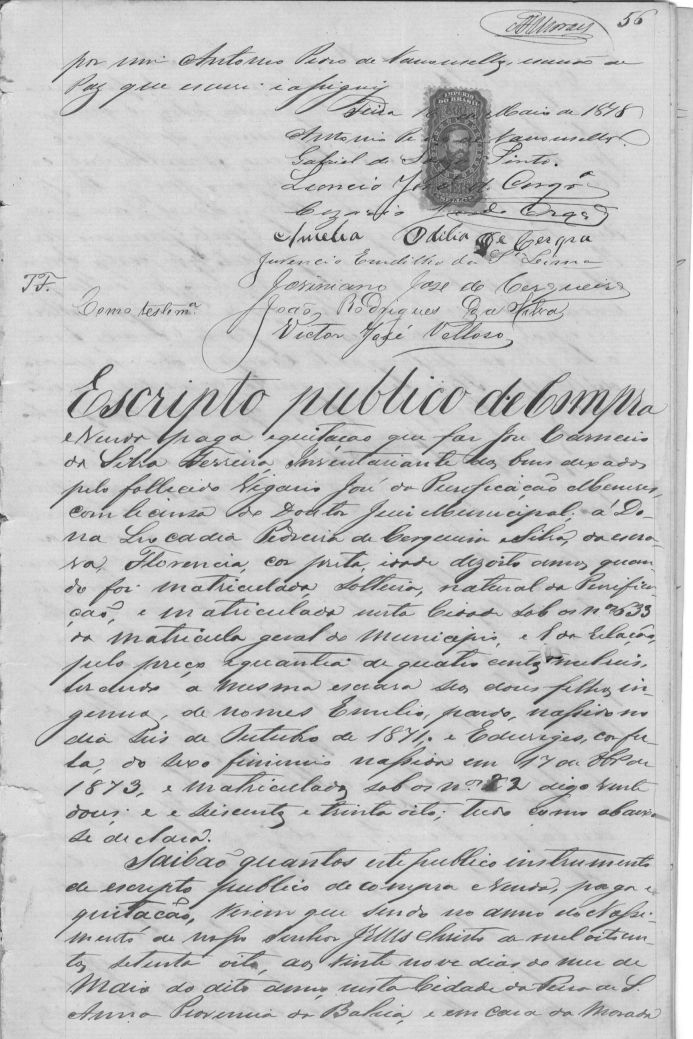 56
por mim Antonio Pedro de Vasconcellos, escrivão de
Paz que escrevi e assigney
Feira Maio de 1878
IMPERIO
DO BRASIL
Antonio Pe de Vasconcellos
Gabriel de Pinto.
Leoncio José de Cerqrª
Cezario
Amelia Odilia de Cerqra
Juvencio Ermilho da Sª Lima
TF.
Joviniano Jose de Cerqueira
Como testemª.
João Rodrigues Da Silva
Victor José Velloso
Escripto publico de Compra
e Venda paga e quitação que faz José Carneiro
da Silva Ferreira Inventariante dos bens dexados
pelo fallecido Vigario José da Purificação Menezes,
com licença do Doutor Juiz Municipal, á Do-
na Leocadia Pedreira de Cerqueira e Silva, da escra-
va, Florencia, cor preta, idade dezoito annos quan-
do foi matriculada, solteira, natural da Purifi-
cação, e matriculada nesta Cidade sob os nos 633
da matricula geral do Municipio, e 1 da Relação,
pelo preço e quantia de quatro centos mil reis,
levando a mesma escrava seus dous filhos in-
genuos, de nomes Emilio, pardo, nassido no
dia seis de Outubro de 1871, e Eduviges, cor pre-
ta, do sexo feminino nassida em 17 de de
1873, e matriculados sob os nos 22 digo vinte
dous; e e seiscentos e trinta oito; tudo como abaixo
se declara.
Saibão quantos este publico instrumento
de escripto publico de compra e Venda, paga e
quitação, virem que sendo no anno do Nassi-
mento de nosso Senhor Jesus Christo de mil oitocen-
tos setenta oito, aos vinte nove dias do mez de
Maio do dito anno, nesta Cidade da Feira de S.
Anna Provincia da Bahia, e em casa da morada